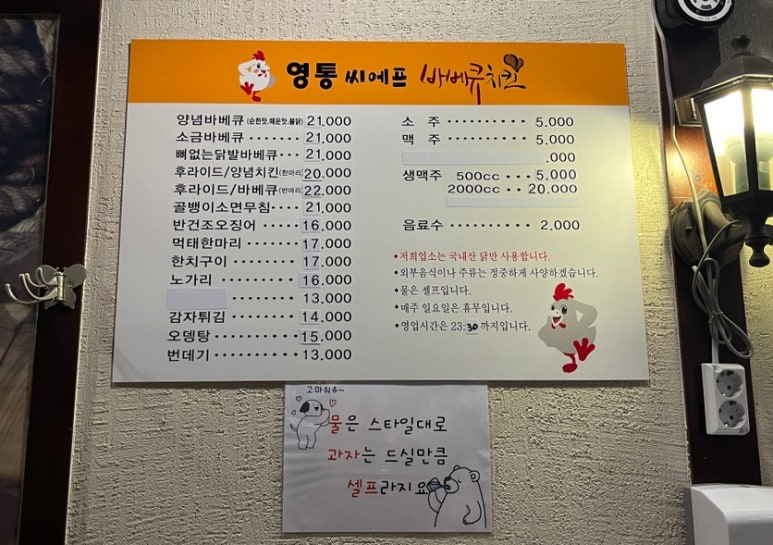 영통 씨에프 바베큐치킨
양념바베큐 (순한맛,매운맛,불닭) 21.000
소금바베큐 ········ 21.000
뼈없는닭발바베큐··· 21.000
후라이드/양념치킨(한마리) 20.000
후라이드/바베큐(반마리) 22.000
골뱅이소면무침···· 21.000
반건조오징어 ······ 16.000
먹태한마리 ········ 17.000
한치구이 ·········· 17.000
노가리 ············ 16.000
13.000
감자튀김 ·········· 14.000
오뎅탕 ············ 15.000
번데기 ············ 13.000
소 주 ·········· 5.000
맥 주 ·········· 5.000
.000
생맥주 500cc ··· 5.000
2000cc ·· 20.000
음료수 ·········· 2.000
•저희업소는 국내산 닭만 사용합니다.
•외부음식이나 주류는 정중하게 사양하겠습니다.
•물은 셀프입니다.
•매주 일요일은 휴무입니다.
•영업시간은 23:30 까지입니다.
고마워유~
물은 스타일대로
과자는 드실만큼
셀프라지요